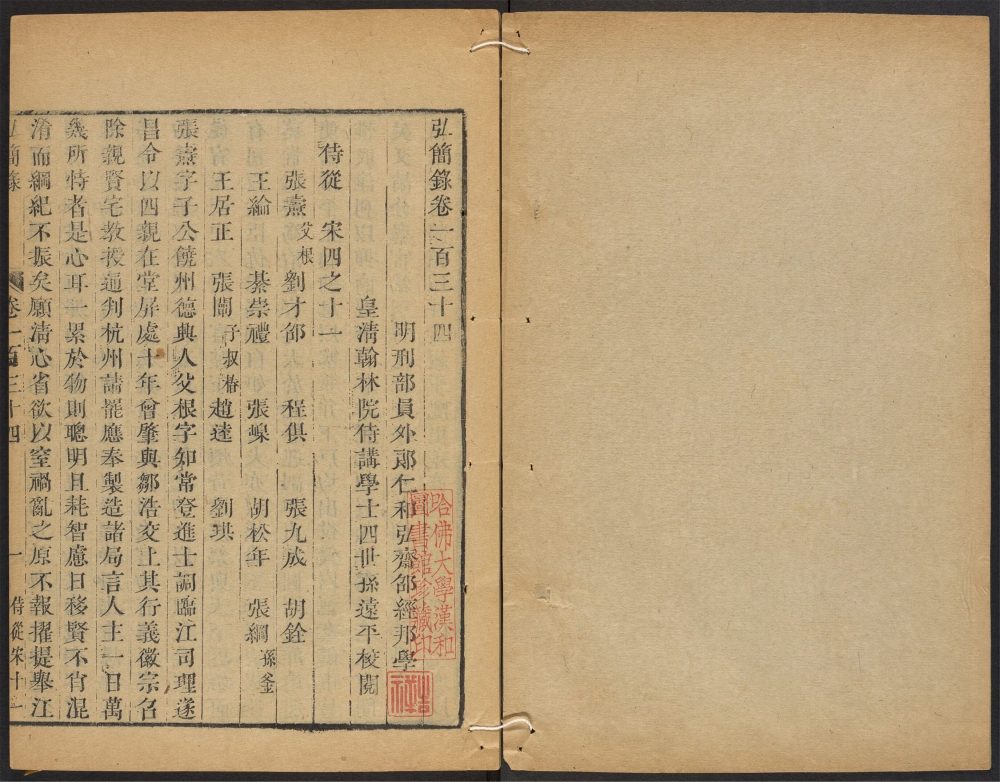 弘簡錄卷一百三十四
明刑部員外郎仁和弘齋邵經邦學
皇清翰林院侍講學士四世孫遠平校閱
侍從 宋四之十一
張燾父根 劉才邵 程俱 張九成 胡銓
王綸 綦崇禮 張嵲 胡松年 張綱孫釜
王居正 張闡子叔椿 趙逵 劉珙
張燾字子公饒州德興人父根字知常登進士調臨江司理遂
昌令以四親在堂屏處十年曾肇與鄒浩交上其行義徽宗召
除親賢宅教授通判杭州請罷應奉製造諸局言人主一日萬
幾所恃者是心耳一累於物則聰明且耗智慮日移賢不肖混
淆而綱紀不振矣願清心省欲以窒禍亂之原不報擢提舉江
弘簡錄 卷一百三十四 一 侍從宋十一
哈佛大學漢和
圖書館珍藏印